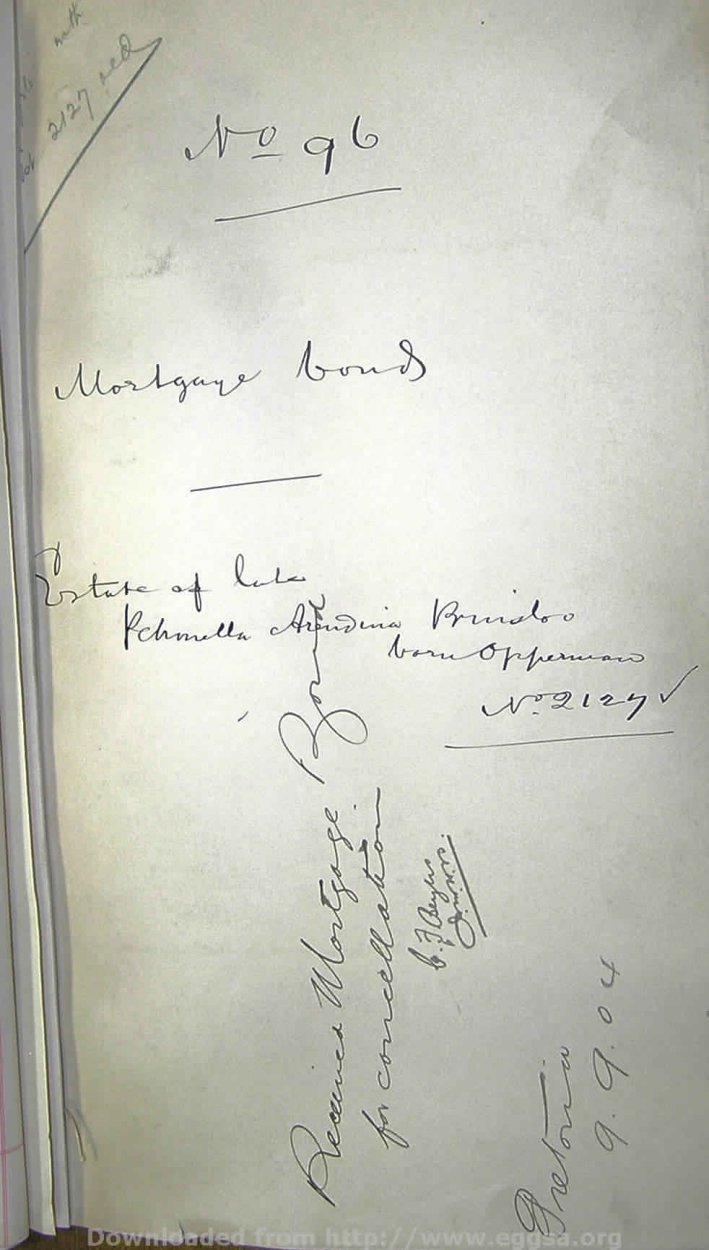 2127
No 96
Mortgage bond
Estate of late
Petronella Arendina Prinsloo
born Opperman
No. 2127 ✓
Received Mortgage Bond
for cancellation
Pretoria
9.9.04
Downloaded from http://www.eggsa.org